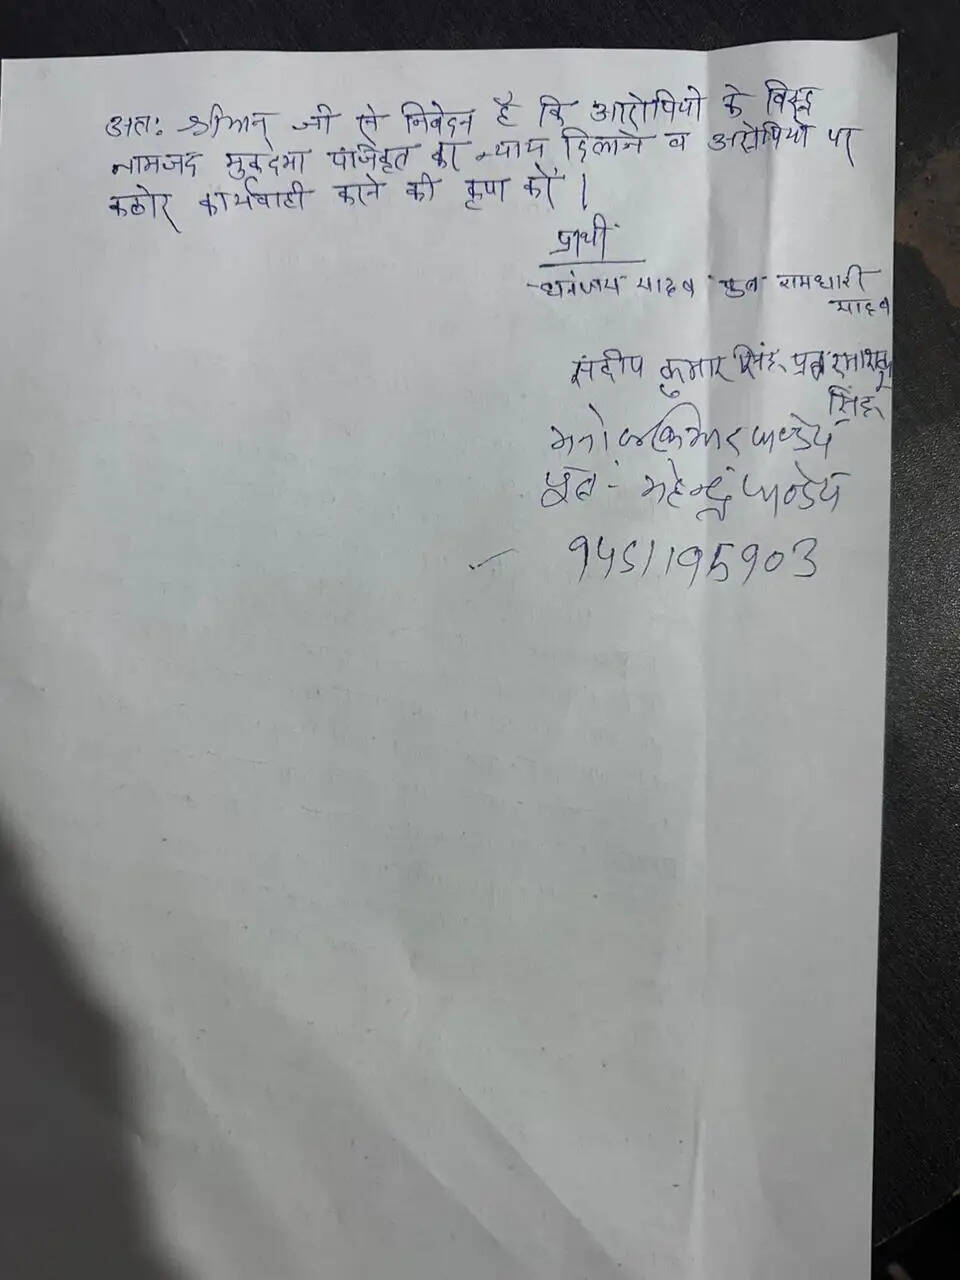 अतः श्रीमान जी से निवेदन है कि आरोपियो के विरूद्ध
नामजद मुकदमा पंजिकृत कर न्याय दिलाने व आरोपियों पर
कठोर कार्यवाही करने की कृपा करें।
प्रार्थी
धनंजय यादव पुत्र रामधारी
यादव
संदीप कुमार सिंह पुत्र
सिंह
मनोज कुमार पाण्डेय
पुत्र - महेन्द्र पाण्डेय
9451195903